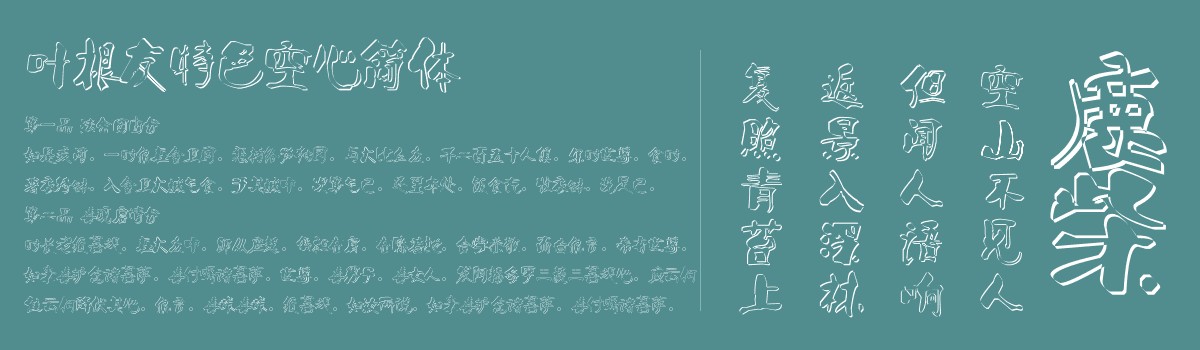 叶根友特色空心简体
第一品 法会因由分
如是我闻。一时佛在舍卫国。祇树给孤独园。与大比丘众。千二百五十人俱。尔时世尊。食时。
著衣持钵。入舍卫大城乞食。于其城中。次第乞已。还至本处。饭食讫。收衣钵。洗足已。
第二品 善现启请分
时长老须菩提。在大众中。即从座起。偏袒右肩。右膝着地。合掌恭敬。而白佛言。希有世尊。
如来善护念诸菩萨。善付嘱诸菩萨。世尊。善男子。善女人。发阿耨多罗三藐三菩提心。应云何
住云何降伏其心。佛言。善哉善哉。须菩提。如汝所说。如来善护念诸菩萨。善付嘱诸菩萨。
鹿柴
空山不见人
但闻人语响
返景入深林
复照青苔上